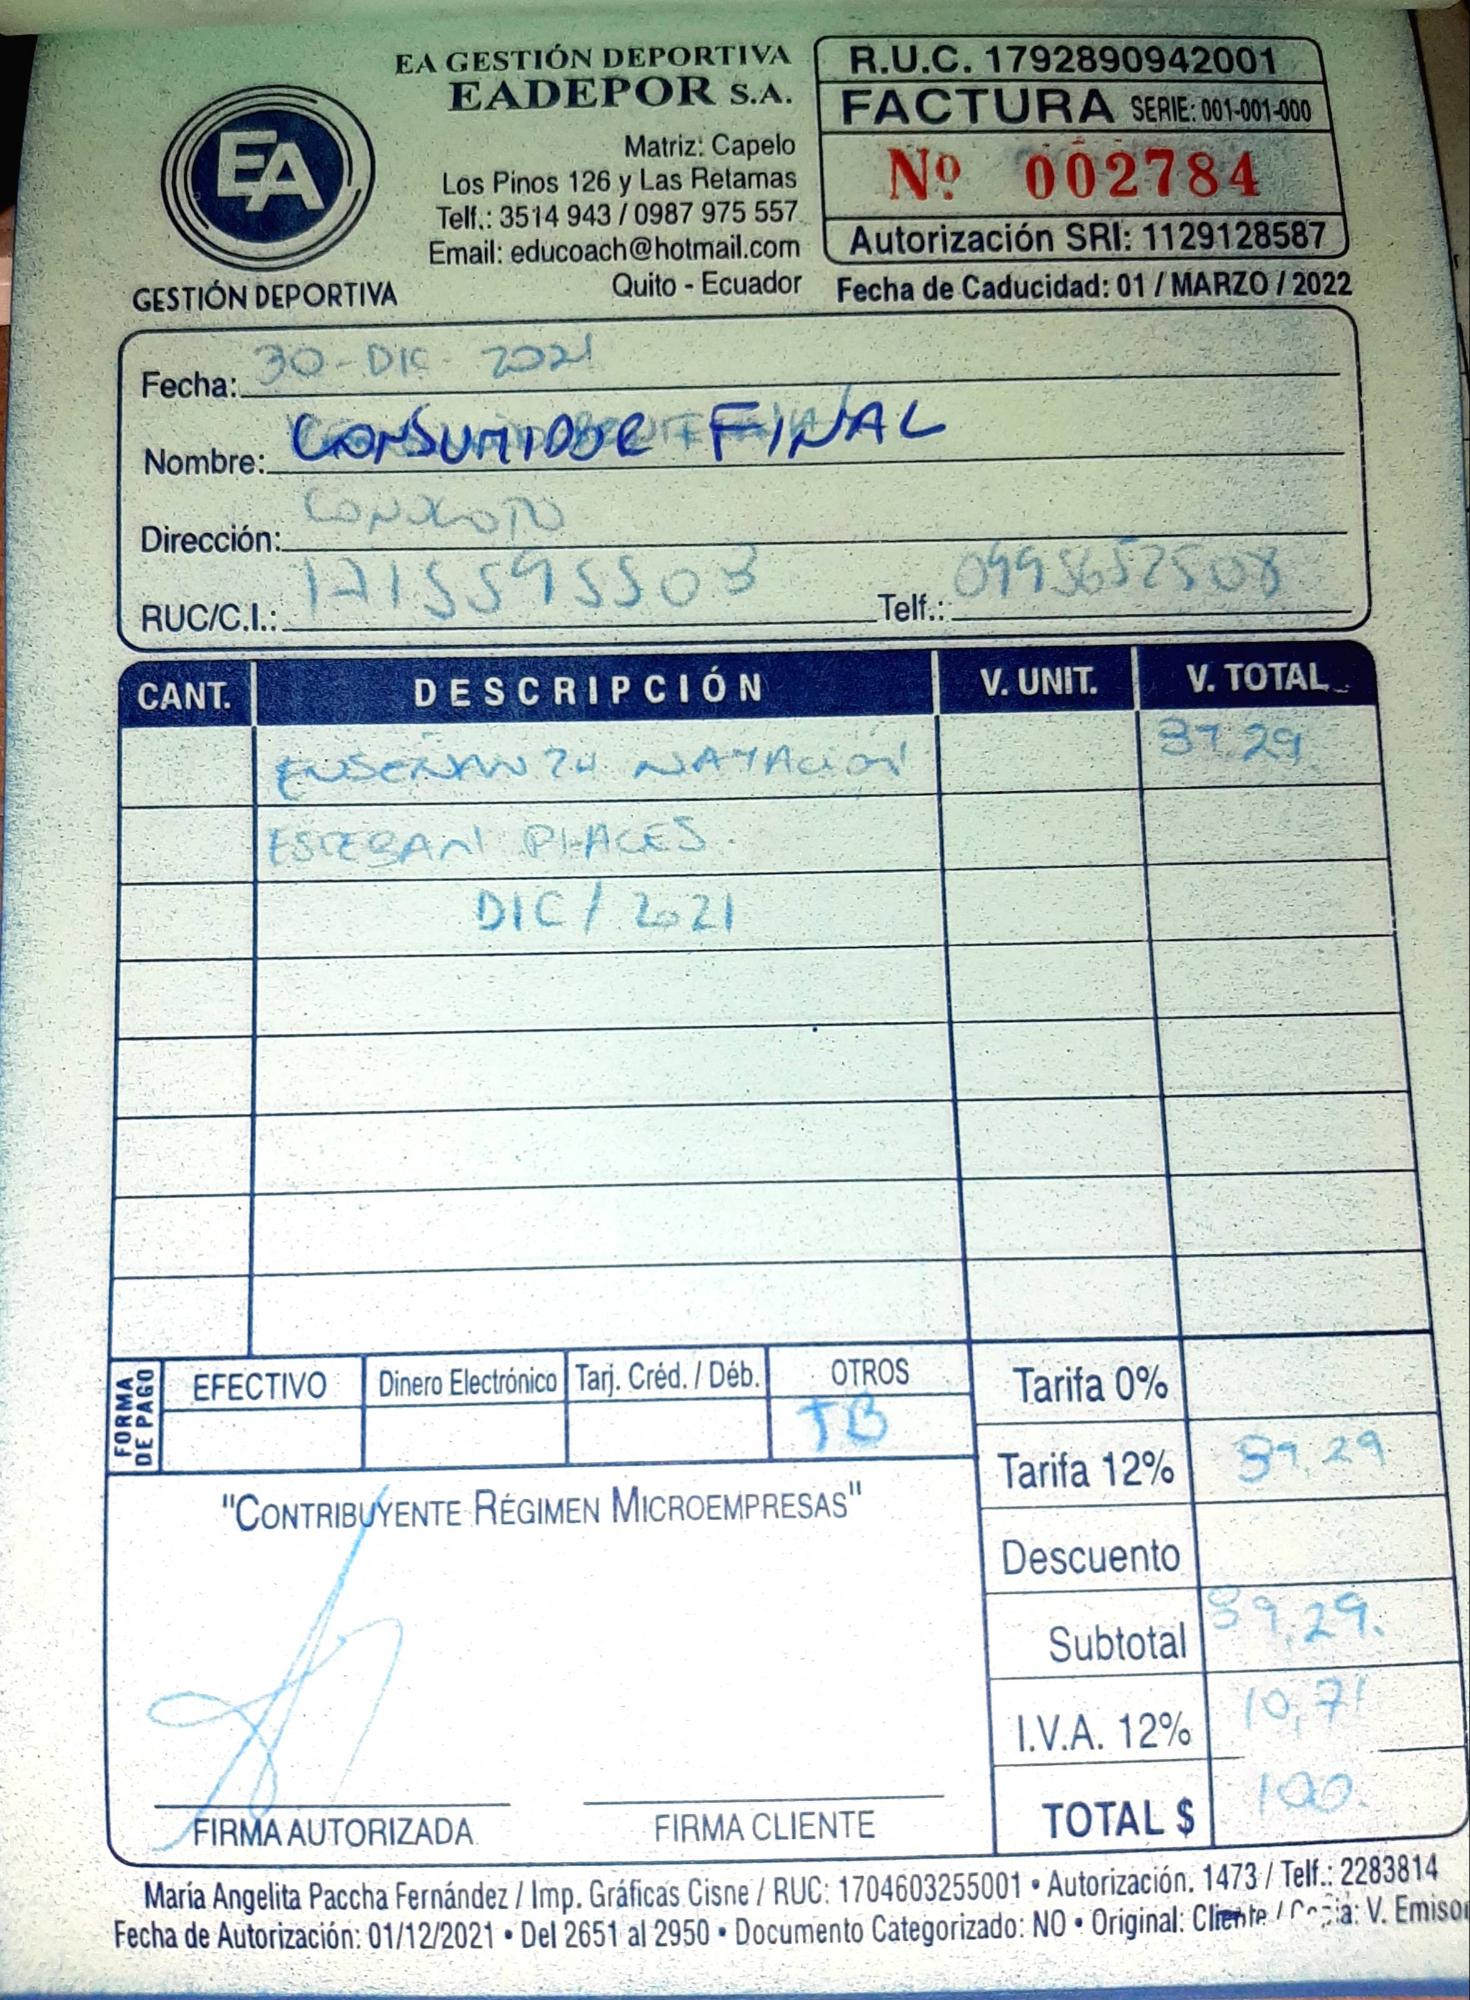 EA GESTIÓN DEPORTIVA
EADEPOR S.A.
Matriz: Capelo
Los Pinos 126 y Las Retamas
Telf.: 3514 943 / 0987 975 557
Email: educoach@hotmail.com
Quito - Ecuador
EA
GESTIÓN DEPORTIVA
R.U.C. 1792890942001
FACTURA SERIE: 001-001-000
Nº 002784
Autorización SRI: 1129128587
Fecha de Caducidad: 01 / MARZO / 2022
Fecha: 30-DIC-2021
Nombre: CONSUMIDOR FINAL
Dirección: CONOCOTO
RUC/C.I.: 1715595503 Telf.: 0995652508
CANT. DESCRIPCIÓN V. UNIT. V. TOTAL
ENSEÑANZA NATACIÓN 89.29
ESTEBAN
DIC / 2021
FORMA DE PAGO EFECTIVO Dinero Electrónico Tarj. Créd. / Déb. OTROS
TB
Tarifa 0%
Tarifa 12% 89,29
Descuento
Subtotal 89,29.
I.V.A. 12% 10,71
TOTAL $ 100.
"CONTRIBUYENTE RÉGIMEN MICROEMPRESAS"
FIRMA AUTORIZADA FIRMA CLIENTE
María Angelita Paccha Fernández / Imp. Gráficas Cisne / RUC: 1704603255001 • Autorización. 1473 / Telf.: 2283814
Fecha de Autorización: 01/12/2021 • Del 2651 al 2950 • Documento Categorizado: NO • Original: Cliente / Copia: V. Emisor